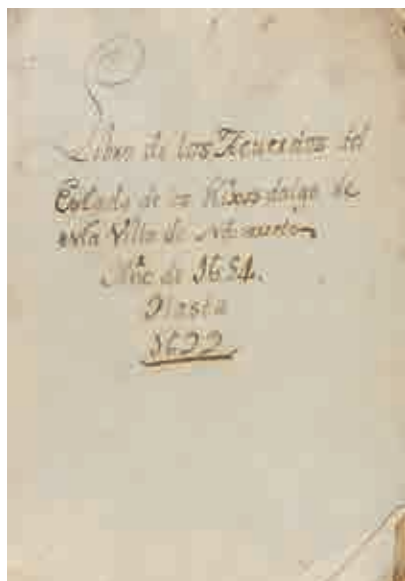 Libro de los Acuerdos del
Estado de los Hixosdalgo de
esta Villa de
Año de 1654.
Hasta
1699